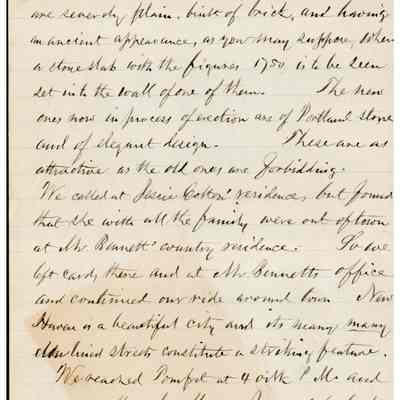 are severely plain, built of brick, and having
an ancient appearance, as you may suppose, when
a stone slab with the figures 1750 is to be seen
set into the wall of one of them. The new
ones now in process of erection are of Portland stone
and of elegant design. These are as
attractive as the old ones are forbidding.
We called at Josie Colton' residence, but found
that she with all the family were out of town
at Mr Bennett' country residence. So we
left cards there and at Mr Bennetts office
and continued our ride around town New
Haven is a beautiful city and its many many
elm lined streets constitute a striking feature.
We reached Pomfret at 4 o'clk P.M. and